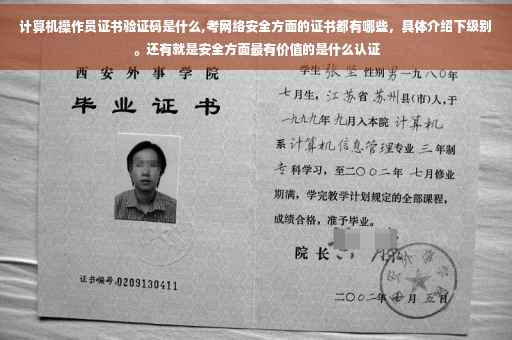 计算机操作员证书验证码是什么,考网络安全方面的证书都有哪些，具体介绍下级别
。还有就是安全方面最有价值的是什么认证
西安外事学院
毕业证书
证书编号:0209130411
学生 张坚 性别 男 一九八〇年
七月生，江苏省 苏州县(市)人,于
一九九九年九月入本院 计算机
系 计算机信息管理专业 三年制
专科学习，至二〇〇二年 七月修业
期满，学完教学计划规定的全部课程，
成绩合格，准予毕业。
院长
二〇〇二年 月五日